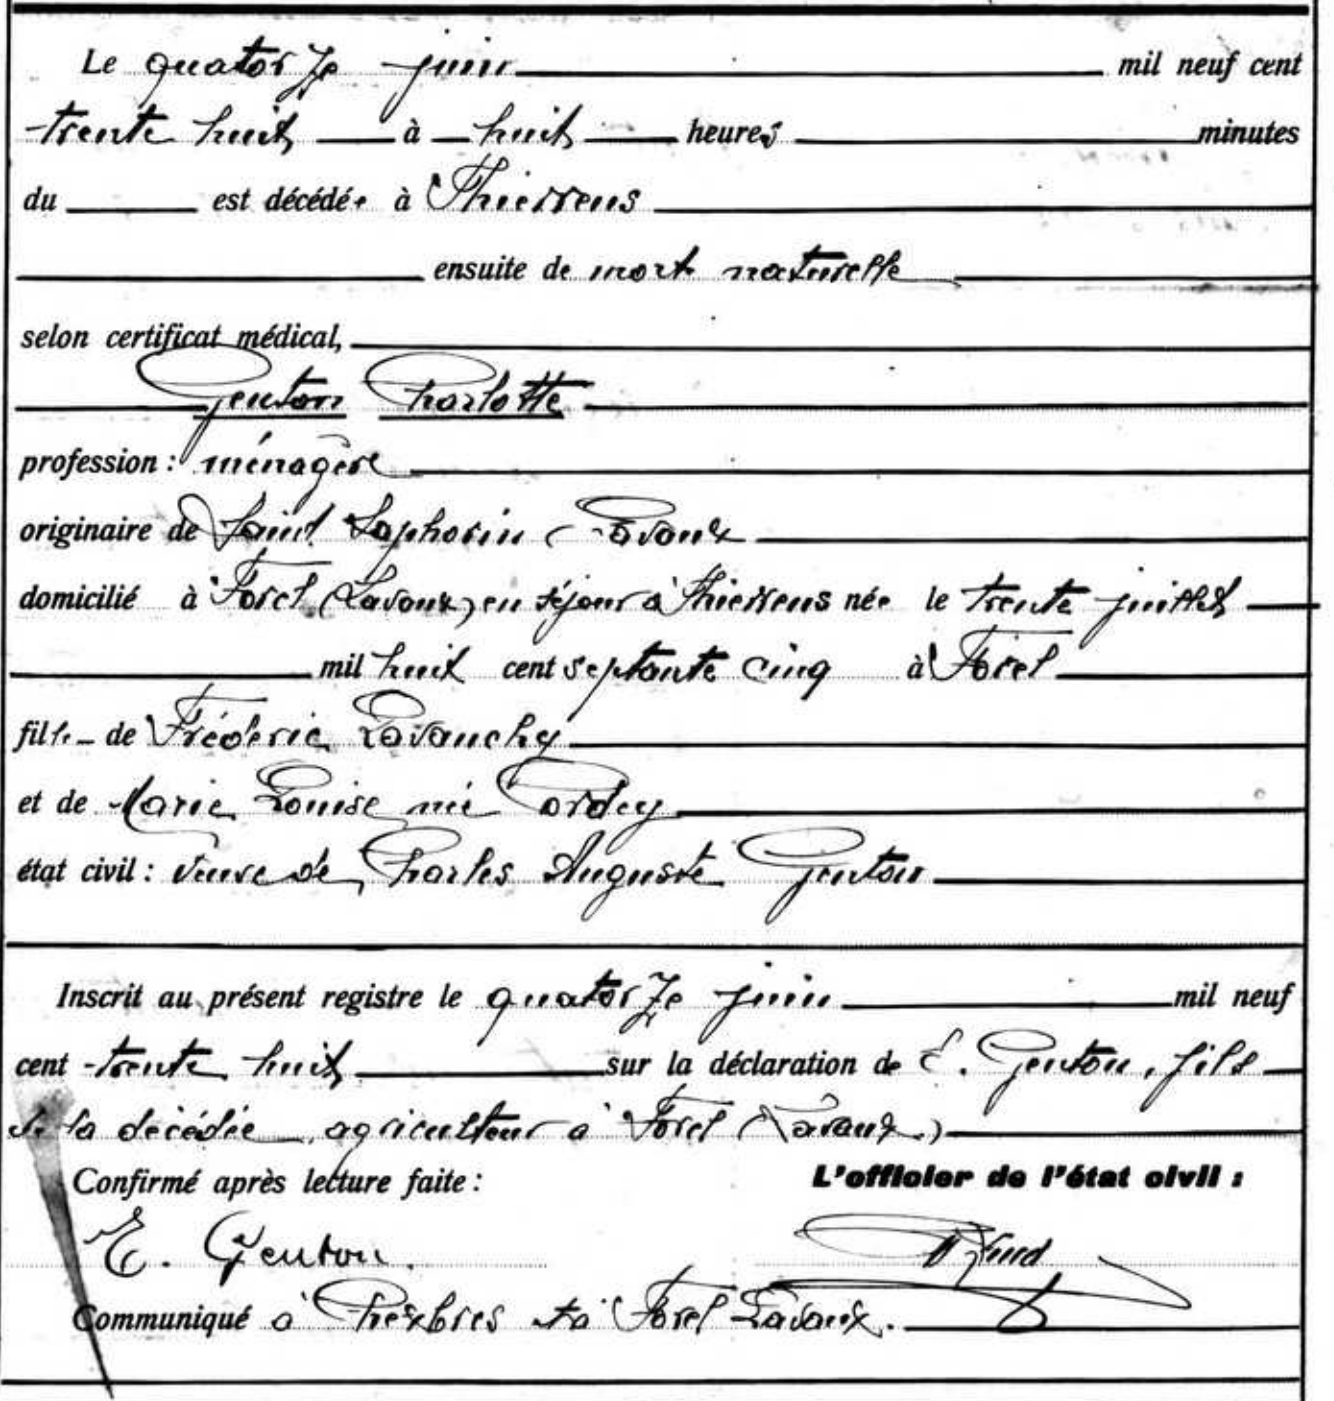 Le quatorze juin mil neuf cent
trente huit à huit heures minutes
du est décédée à Thierrens
ensuite de mort naturelle
selon certificat médical,
Genton Charlotte
profession : ménagère
originaire de Saint Saphorin (Lavaux
domicilié à Forel (Lavaux) en séjour à Thierrens née le trente juillet
mil huit cent septante cinq à Forel
fille de Fréderic Lavanchy
et de Marie Louise née Cordey
état civil : veuve de Charles Auguste Genton
Inscrit au présent registre le quatorze juin mil neuf
cent trente huit sur la déclaration de E. Genton, fils
de la décédée, agriculteur à Forel (Lavaux.)
Confirmé après lecture faite : L'officier de l'état civil :
E. Genton.
Communiqué à Chexbres et à Forel Lavaux.